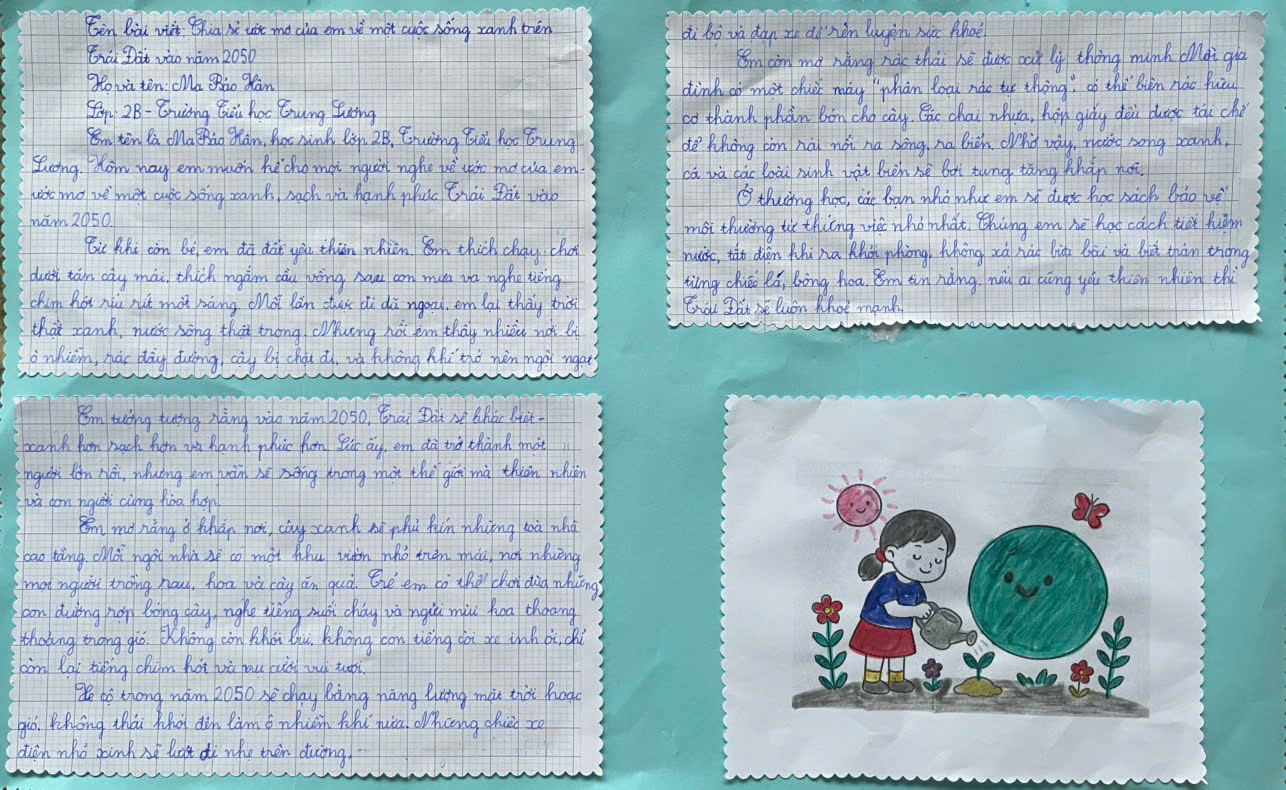 Tên bài viết: Chia sẻ ước mơ của em về một cuộc sống xanh trên
Trái Đất vào năm 2050
Họ và tên: Ma Bảo Hân
Lớp: 2B - Trường Tiểu học Trung Lương
Em tên là Ma Bảo Hân, học sinh lớp 2B, Trường Tiểu học Trung
Lương. Hôm nay em muốn kể cho mọi người nghe về ước mơ của em-
ước mơ về một cuộc sống xanh, sạch và hạnh phúc Trái Đất vào
năm 2050.
Từ khi còn bé, em đã đất yêu thiên nhiên. Em thích chạy chơi
dưới tán cây mái, thích ngắm cầu vồng sau cơn mưa và nghe tiếng
chim hót ríu rít mỗi sáng. Mỗi lần được đi dã ngoại, em lại thấy trời
thật xanh, nước sông thật trong. Nhưng rồi em thấy nhiều nơi bị
ô nhiễm, rác đầy đường, cây bị chặt đi, và không khí trở nên ngột ngạt
Em tưởng tượng rằng vào năm 2050, Trái Đất sẽ khác biệt -
xanh hơn sạch hơn và hạnh phúc hơn. Lúc ấy, em đã trở thành một
người lớn rồi, nhưng em vẫn sẽ sống trong một thế giới mà thiên nhiên
và con người cùng hòa hợp.
Em mơ rằng ở khắp nơi, cây xanh sẽ phủ kín những toà nhà
cao tầng. Mỗi ngôi nhà sẽ có một khu vườn nhỏ trên mái, nơi những
mọi người trồng rau, hoa và cây ăn quả. Trẻ em có thể chơi đùa những
con đường rợp bóng cây, nghe tiếng suối chảy và ngửi mùi hoa thoang
thoảng trong gió. Không còn khói bụi, không con tiếng còi xe inh ỏi, chỉ
còn lại tiếng chim hót và nụ cười vui tươi.
Xe cộ trong năm 2050 sẽ chạy bằng năng lượng mặt trời hoặc
gió, không thải khói đen làm ô nhiễm khí nữa. Những chiếc xe
điện nhỏ xinh sẽ lướt đi nhẹ trên đường, ...
đi bộ và đạp xe để rèn luyện sức khoẻ.
Em còn mơ rằng rác thải sẽ được xử lý thông minh. Mỗi gia
đình có một chiếc máy "phân loại rác tự thộng", có thể biến rác hữu
cơ thành phần bón cho cây. Các chai nhựa, hộp giấy đều được tái chế
để không còn rải nổi ra sông, ra biển. Nhờ vậy, nước song xanh,
cá và các loài sinh vật biển sẽ bơi tung tăng khắp nơi.
Ở thường học, các bạn nhỏ như em sẽ được học sách bảo vệ
môi thường từ thứng việc nhỏ nhất. Chúng em sẽ học cách tiết kiệm
nước, tắt điện khi ra khỏi phòng, không xả rác bừa bãi và biết trân trọng
từng chiếc lá, bông hoa. Em tin rằng, nếu ai cũng yêu thiên nhiên thì
Trái Đất sẽ luôn khoẻ mạnh.